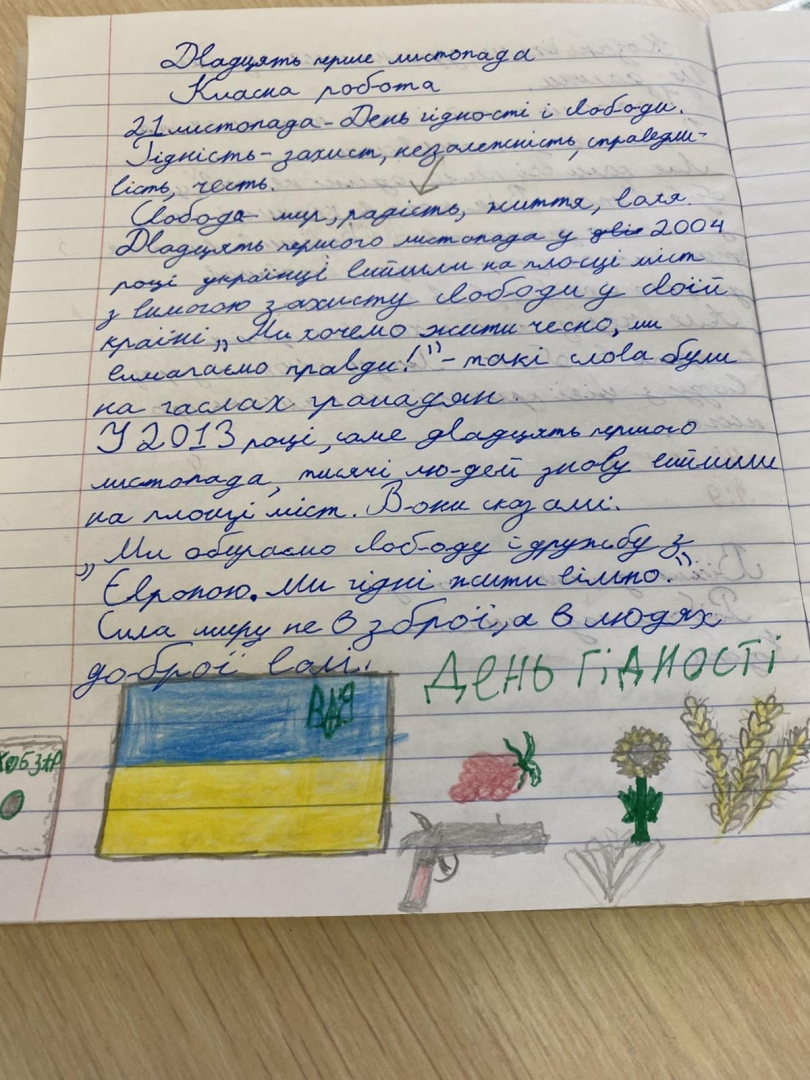 Двадцять перше листопада
Класна робота
21 листопада - День гідності і свободи.
Гідність - захист, незалежність, справедли-
вість, честь.
Свобода - мир, радість, життя, воля.
Двадцять першого листопада у 2004
році українці вийшли на площі міст
з вимогою захисту свободи у своїй
країні „Ми хочемо жити чесно, ми
вимагаємо правди!” - такі слова були
на гаслах громадян
У 2013 році, саме двадцять першого
листопада, тисячі людей знову вийшли
на площі міст. Вони сказали:
„Ми обираємо свободу і дружбу з
Європою. Ми гідні жити вільно.”
Сила миру не в зброї, а в людях
доброї волі.
ДЕНЬ ГІДНОСТІ
КОБЗАР